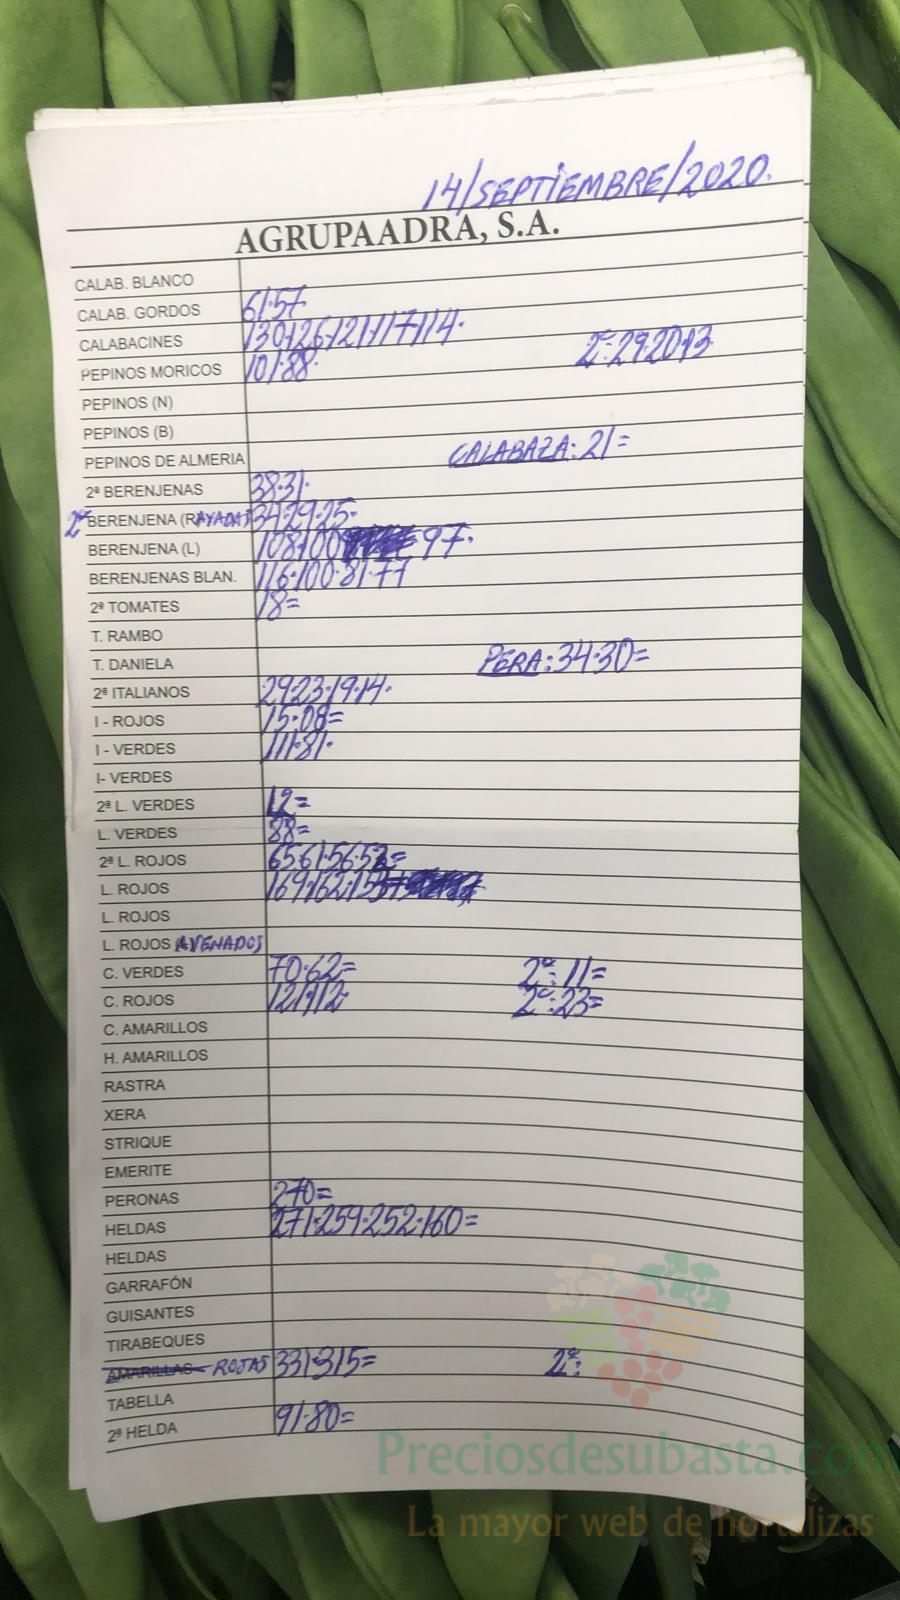 14/SEPTIEMBRE/2020.
AGRUPAADRA, S.A.
CALAB. BLANCO
CALAB. GORDOS 61·57·
CALABACINES 130·126·121·117·114·
2ª: 29·20·13·
PEPINOS MORICOS 101·88·
PEPINOS (N)
PEPINOS (B)
PEPINOS DE ALMERIA CALABAZA: 21=
2ª BERENJENAS 38·31·
2ª BERENJENA (RAYADAS) 34·29·25·
BERENJENA (L) 108·100 97·
BERENJENAS BLAN. 116·100·81·77
2ª TOMATES 18=
T. RAMBO
T. DANIELA PERA: 34·30=
2ª ITALIANOS 29·23·19·14·
I - ROJOS 15·08=
I - VERDES 111·81·
I- VERDES
2ª L. VERDES 12=
L. VERDES 88=
2ª L. ROJOS 65·61·56·52=
L. ROJOS 169·162·153
L. ROJOS
L. ROJOS AVENADOS
C. VERDES 70·62= 2ª: 11=
C. ROJOS 121·112· 2ª: 23=
C. AMARILLOS
H. AMARILLOS
RASTRA
XERA
STRIQUE
EMERITE
PERONAS 270=
HELDAS 271·259·252·160=
HELDAS
GARRAFÓN
GUISANTES
TIRABEQUES
AMARILLAS ROJAS 331·315= 2ª:
TABELLA
2ª HELDA 91·80=
Preciosdesubasta.com
La mayor web de hortalizas